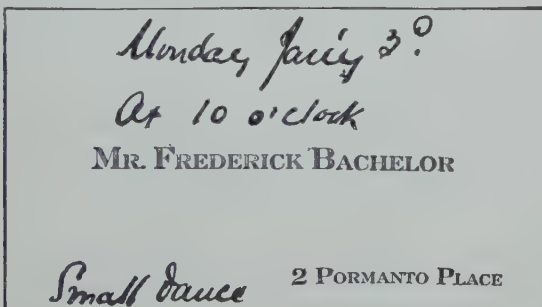 Monday Jan'y 3º
At 10 o'clock
MR. FREDERICK BACHELOR
Small Dance 2 PORMANTO PLACE